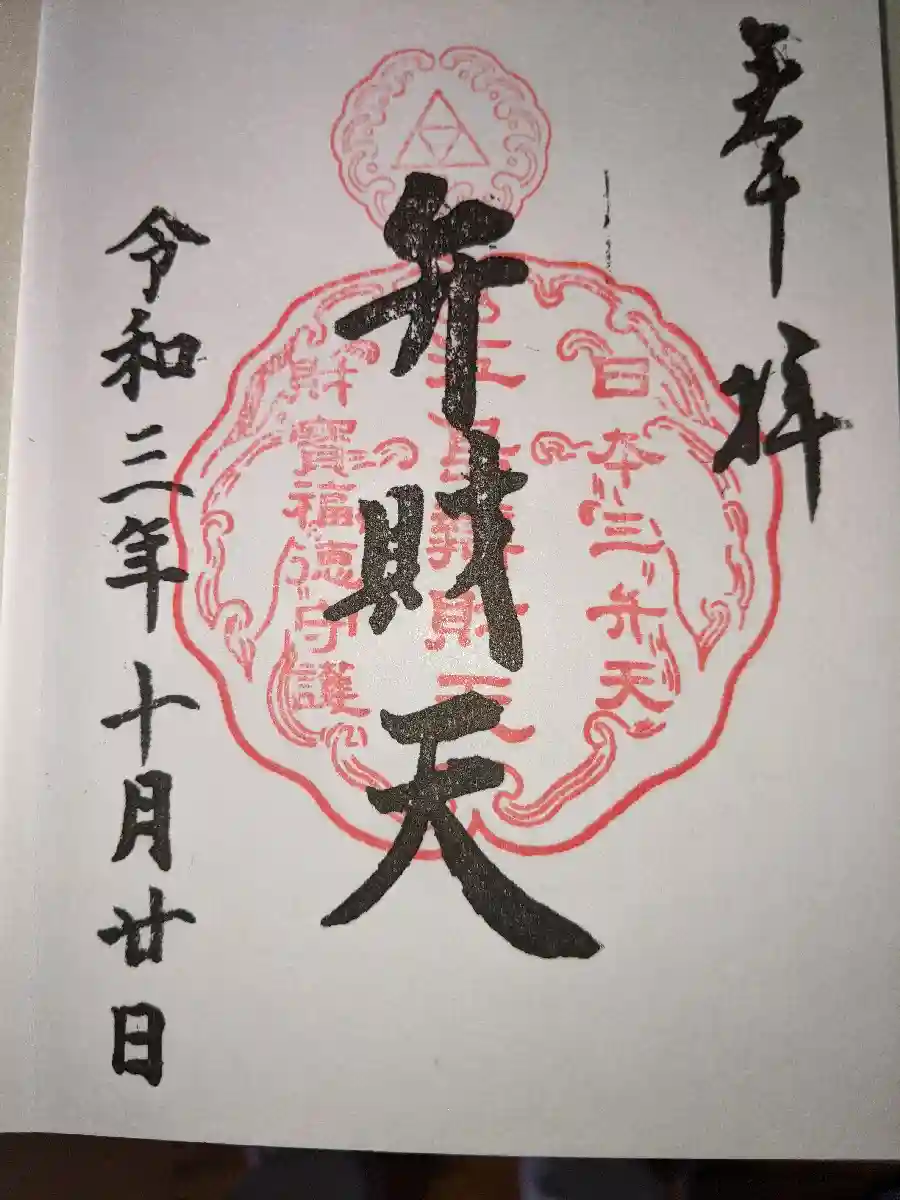 奉拝
日本三弁天
財天
財寶福徳守護
弁財天
令和三年十月廿日